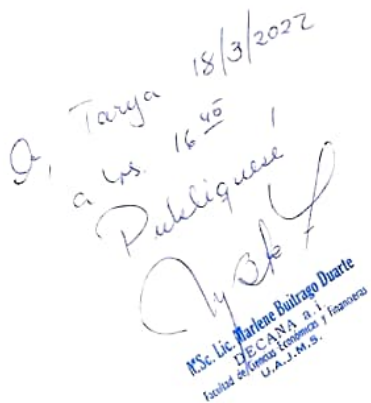 Tarija 18/3/2022
a hrs. 16 40
Publiquese
M.Sc. Lic. Marlene Buitrago Duarte
DECANA a.i.
Facultad de Ciencias Económicas y Financieras
U.A.J.M.S.